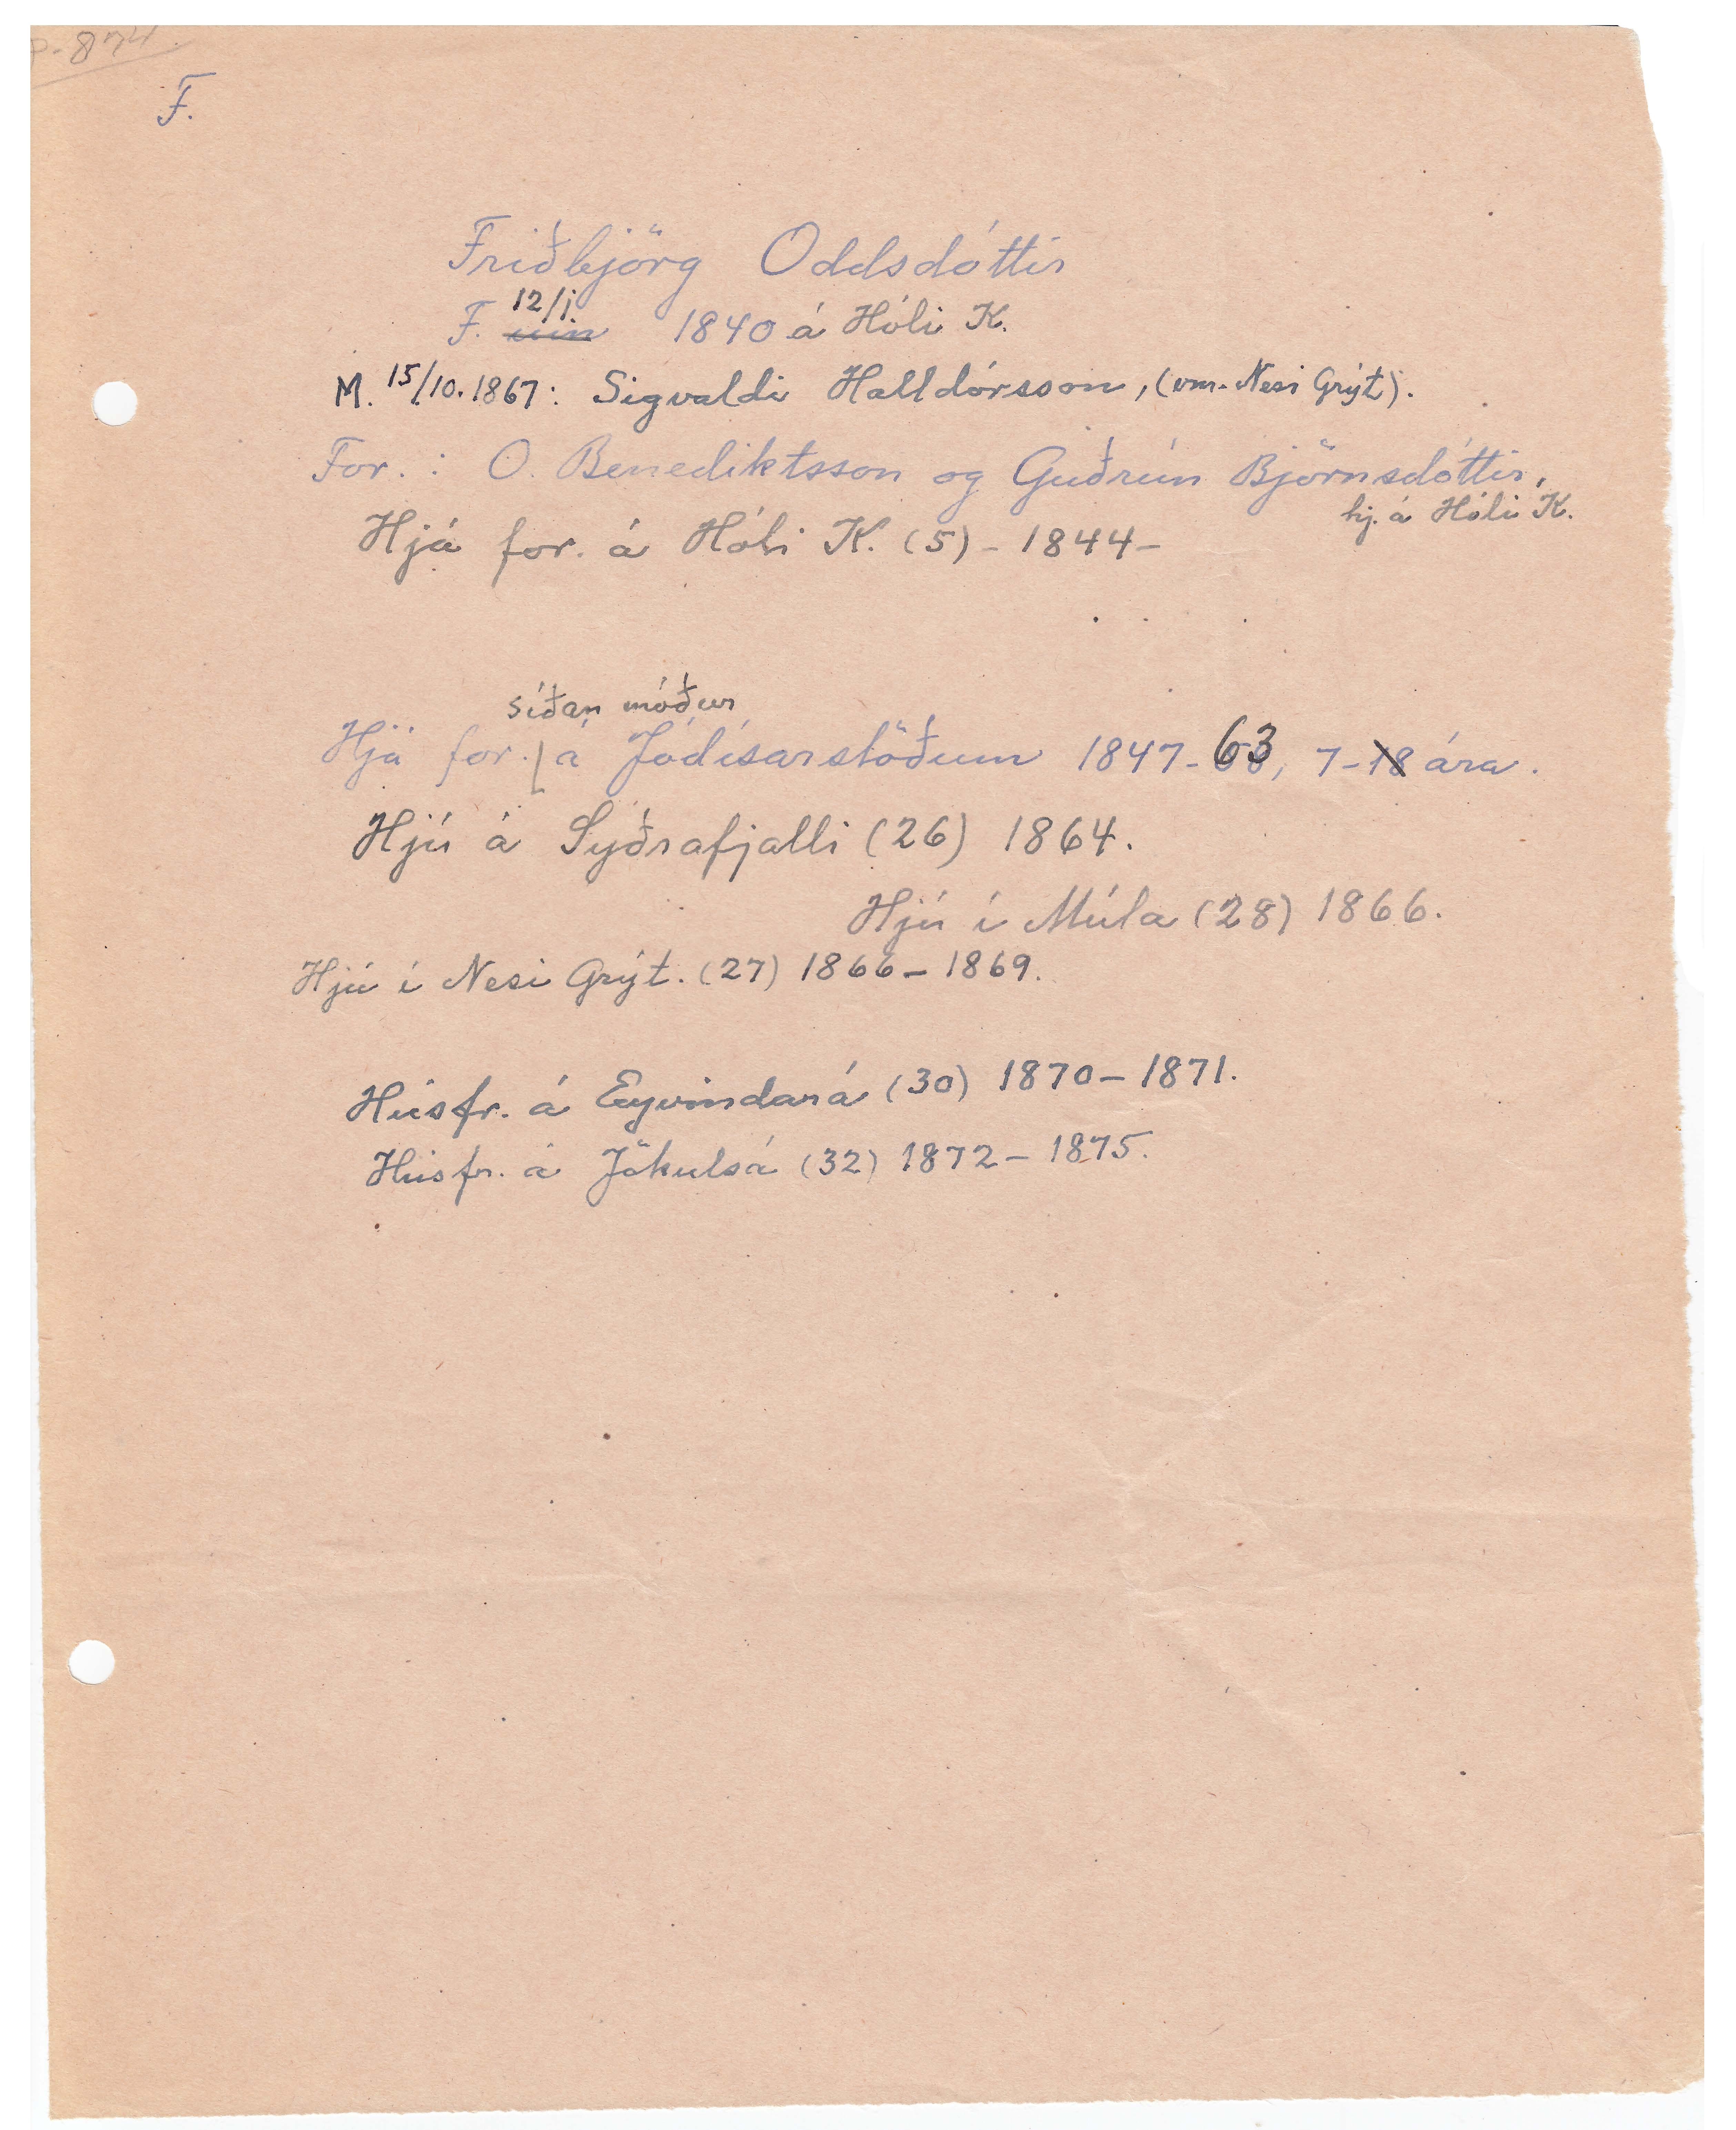 F.
Friðbjörg Oddsdóttir
F. 12/1 1840 á Hóli K.
M. 15/10. 1867: Sigvaldi Halldórsson, (vm. Nesi Grýt).
For.: O. Benediktsson og Guðrún Björnsdóttir,
hj. á Hóli K.
Hjá for. á Hóli K. (5) - 1844 -
síðan móður
Hjá for. á Jódísarstöðum 1847-63, 7-18 ára.
Hjú á Syðrafjalli (26) 1864.
Hjú í Múla (28) 1866.
Hjú í Nesi Grýt. (27) 1866 - 1869.
Húsfr. á Eyvindará (30) 1870 - 1871.
Húsfr. á Jökulsá (32) 1872 - 1875.